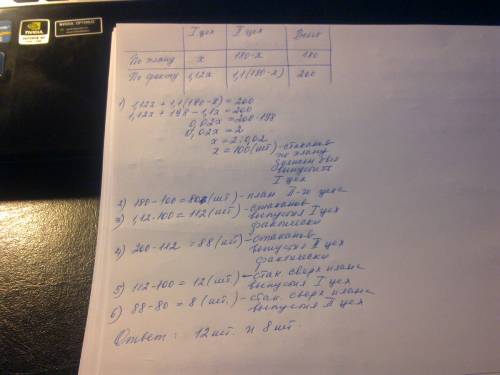 NVIDIA
I цех II цех Всего
По плану x 180-x 180
По факту 1,12x 1,1(180-x) 200
1) 1,12x + 1,1(180-x) = 200
1,12x + 198 - 1,1x = 200
0,02x = 200-198
0,02x = 2
x = 2:0,02
x = 100 (шт) - стаканов
по плану
должен был
выпустить
I цех
2) 180-100 = 80 (шт) - план II-го цеха
3) 1,12·100 = 112 (шт) - стаканов
выпустил I цех
фактически
4) 200-112 = 88 (шт) - стаканов
выпустил II цех
фактически
5) 112-100 = 12 (шт.) - стак. сверх плана
выпустил I цех
6) 88-80 = 8 (шт.) - стак. сверх плана
выпустил II цех
Ответ: 12 шт. и 8 шт.